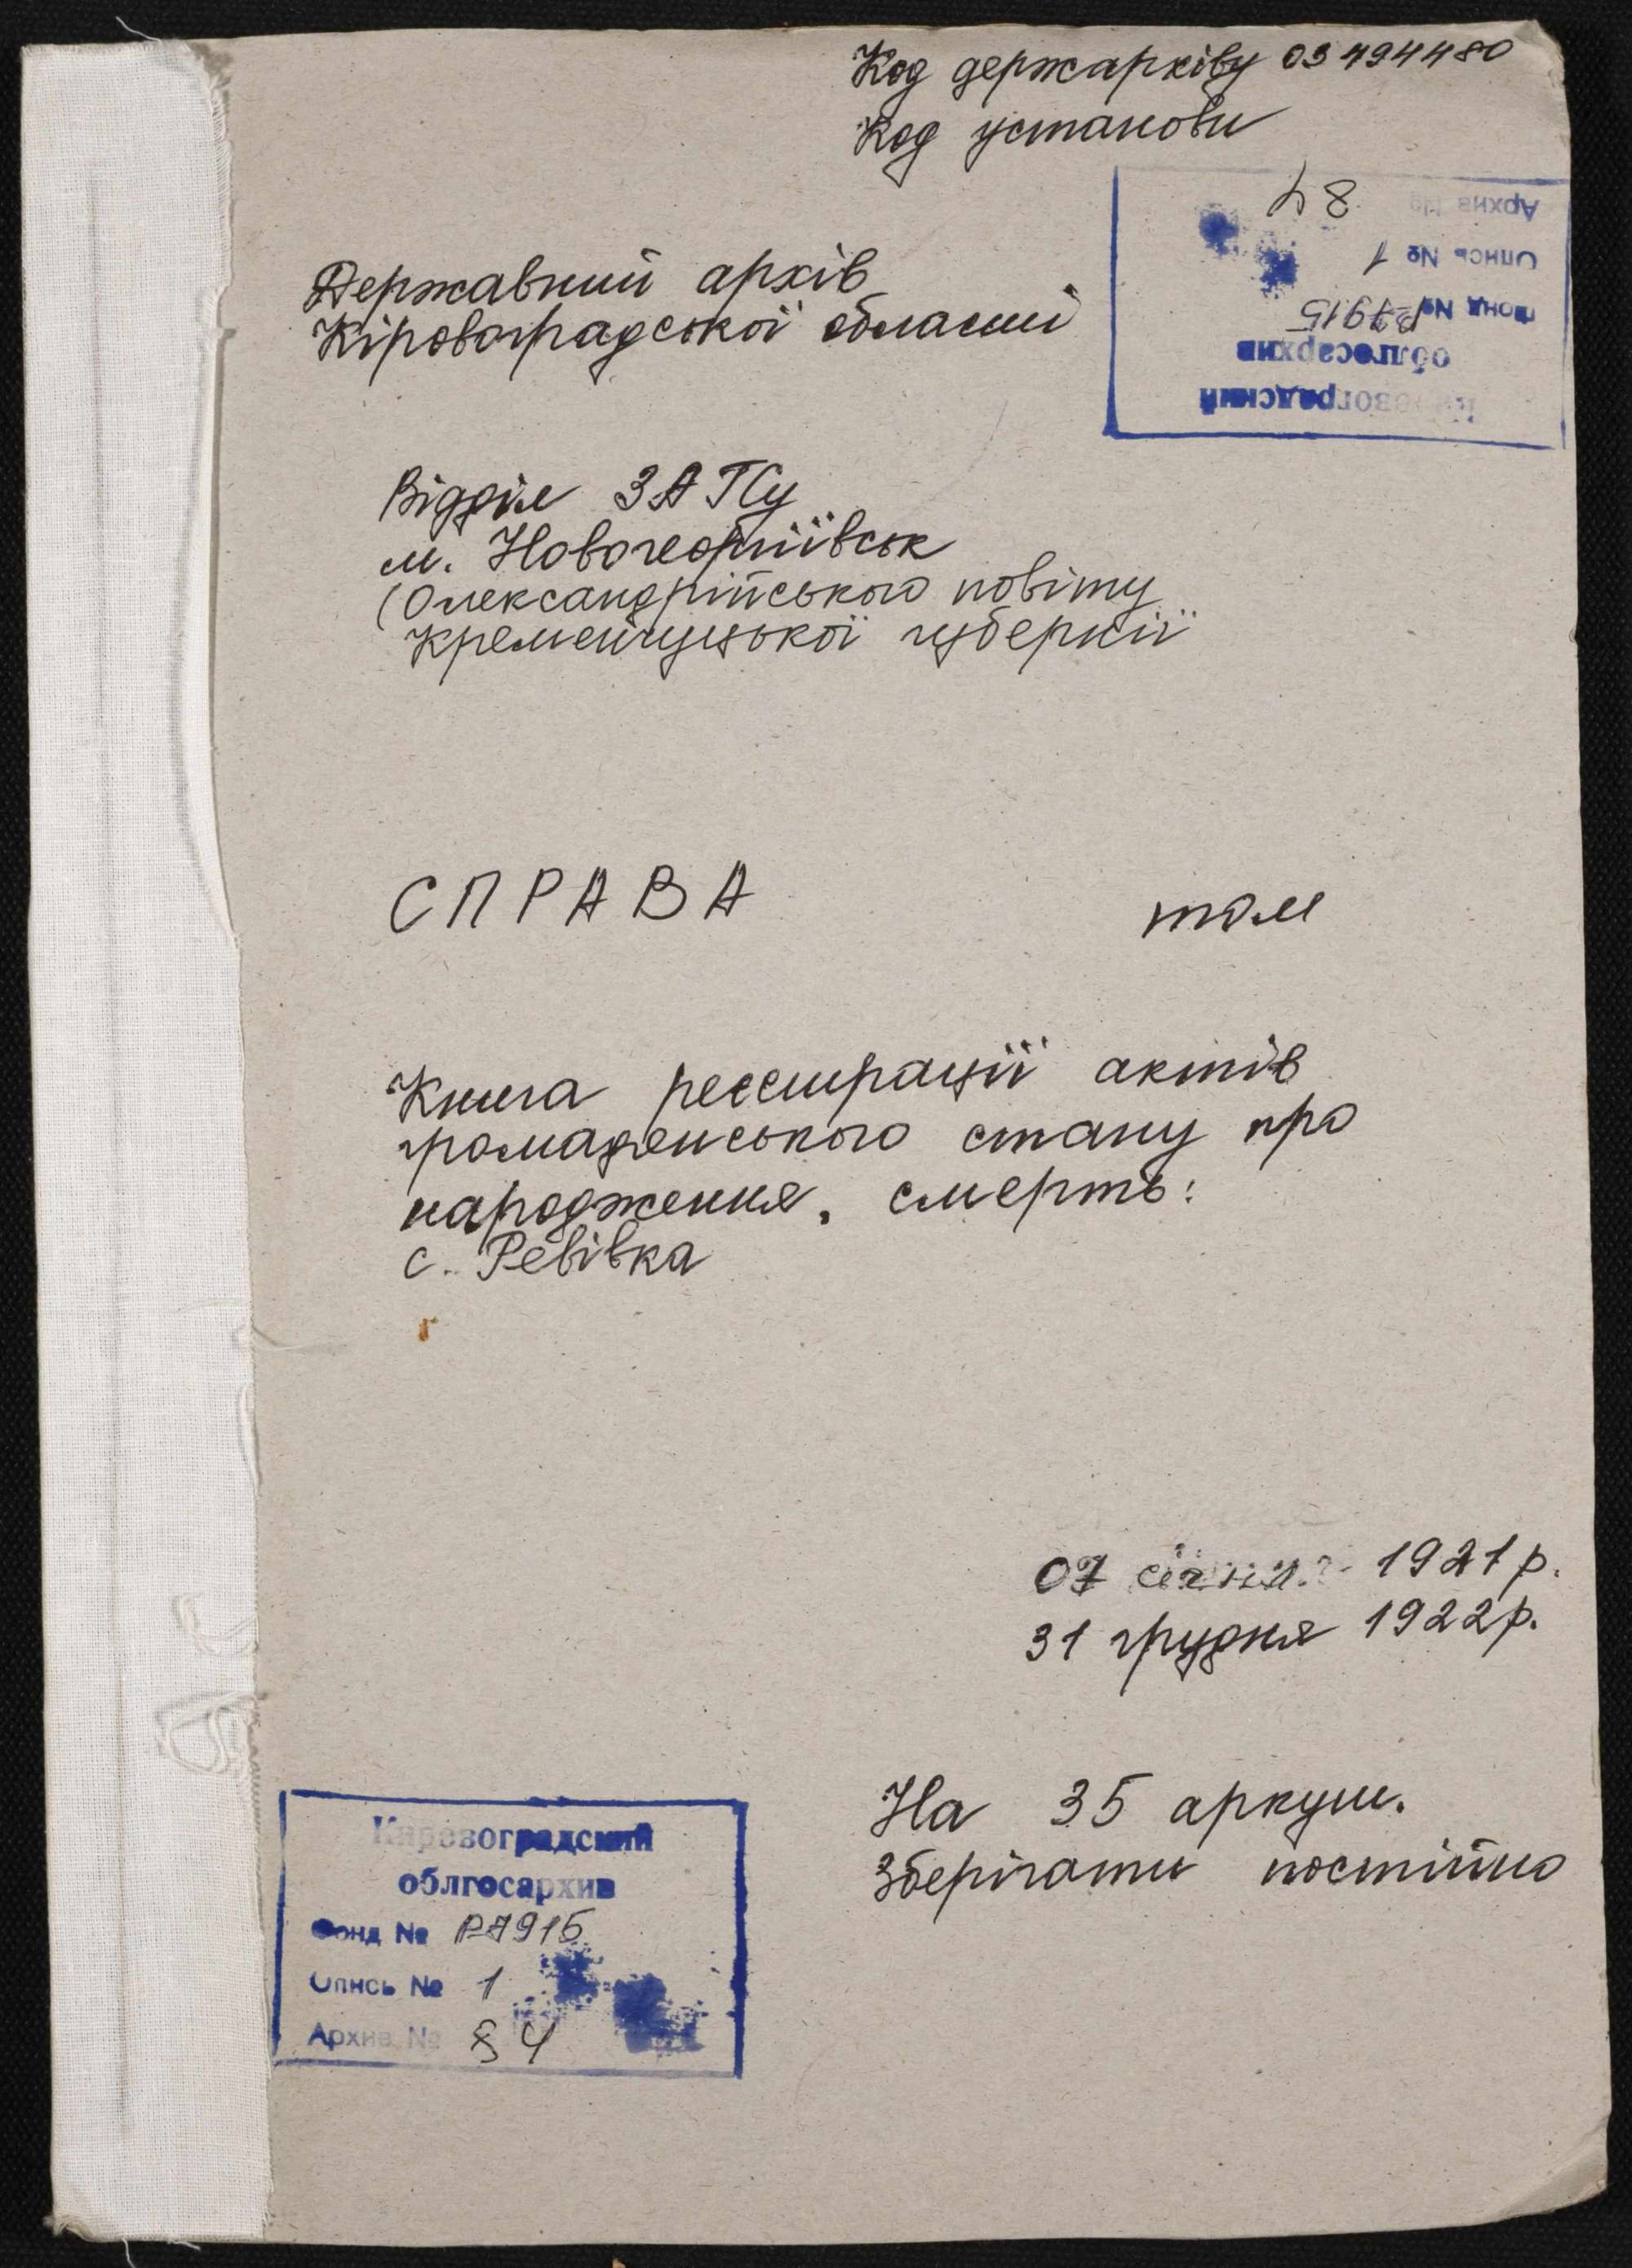 Код держархіву 03494480
Код установи
Архив № 84
Опись № 1
Фонд № Р-7915
облгосархив
Кировоградский
Державний архів
Кіровоградської області
Відділ ЗАГСу
м. Новогеоргіївськ
(Олександрійського повіту
Кременчуцької губернії
СПРАВА том
Книга реєстрації актів
громадянського стану про
народження, смерть:
с. Ревівка
07 січня 1921 р.
31 грудня 1922 р.
На 35 аркуш.
Зберігати постійно
Кировоградский
облгосархив
Фонд № Р-7915
Опись № 1
Архив № 84